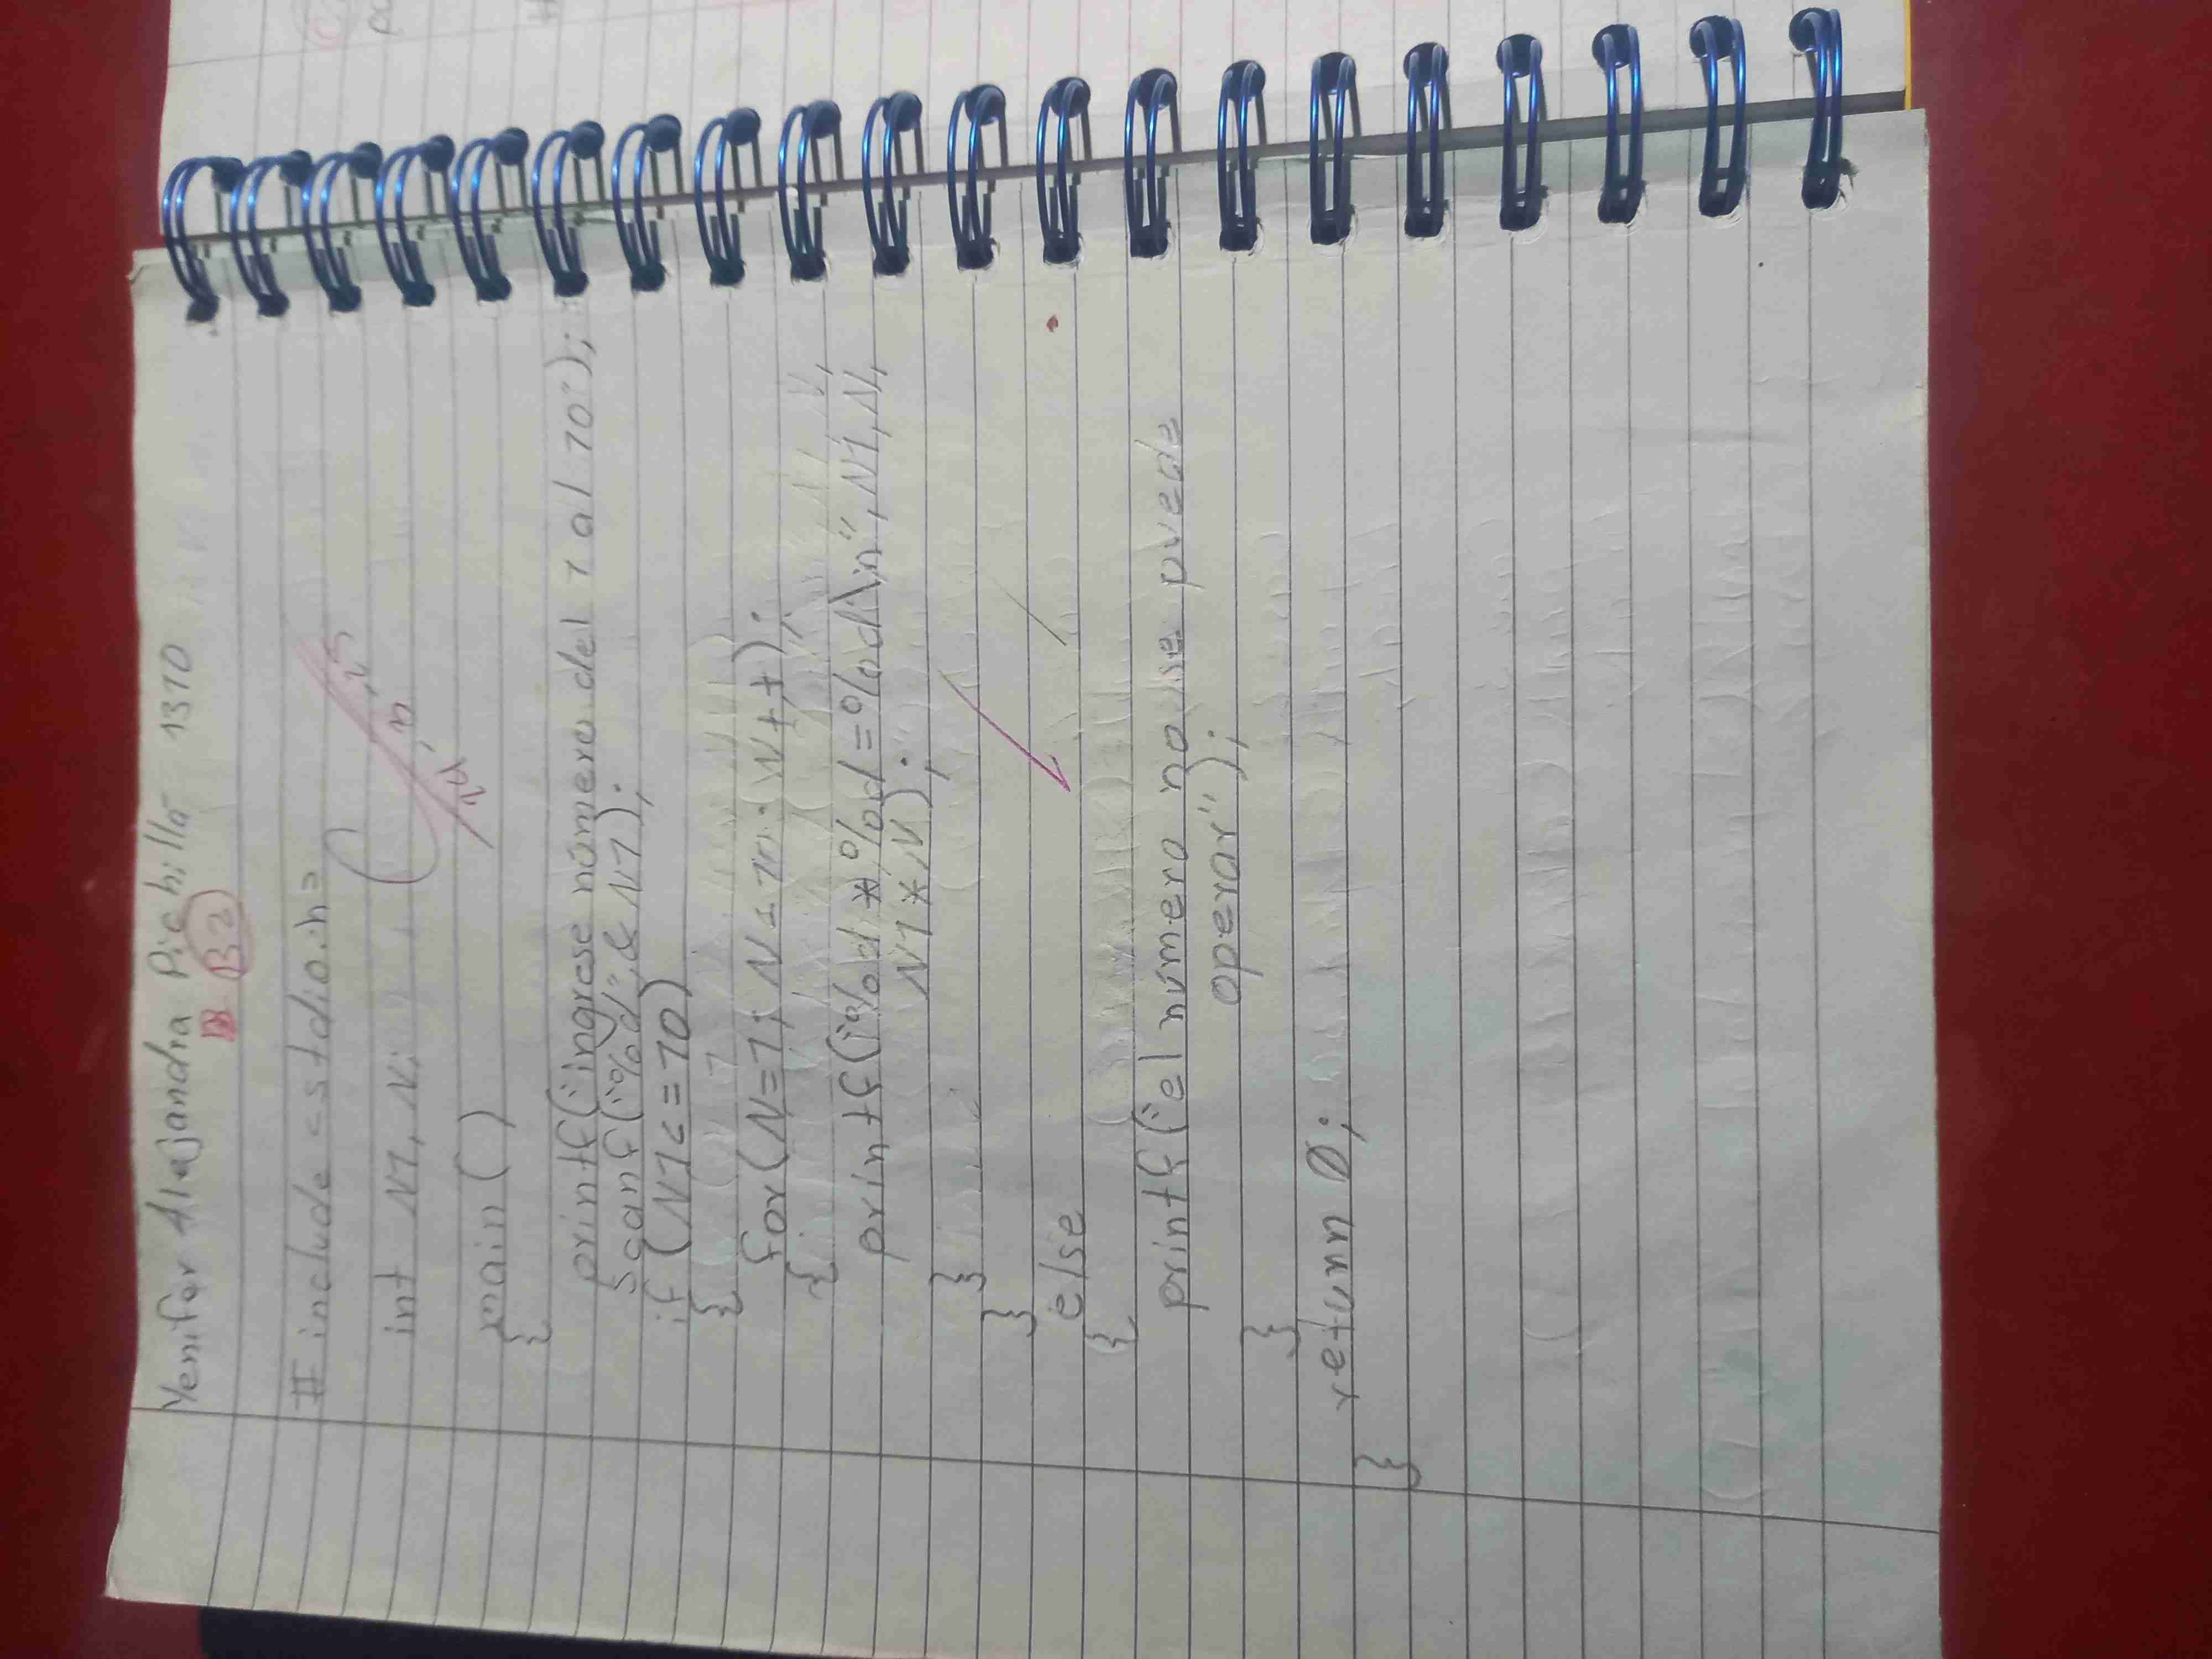 Yenifer Alejandra Pichilla 1310
B B2
# include <stdio.h>
int N1, N;
main ( )
{
printf("ingrese número del 1 al 10");
Scanf("%d",& N1);
if (N1<=10)
{
for (N=1; N≤10; N++);
{
printf("%d *%d =%d\n", N1, N,
N1*N);
}
}
else
{
printf("el número no se puede
operar");
}
return 0;
}